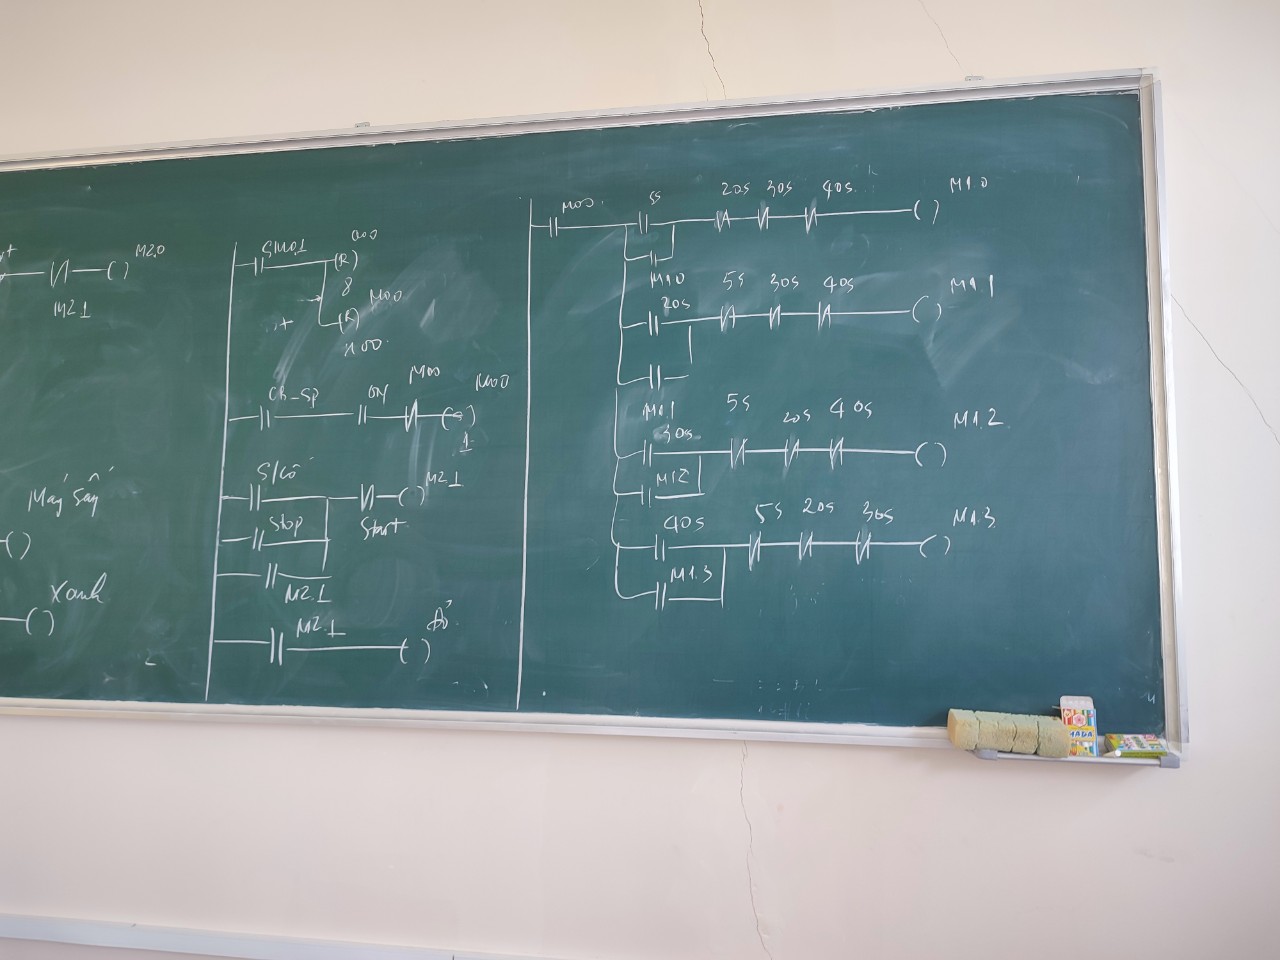 M2.0
M2.1
Máy sấy
Xanh
SM0.1
Q0.0
(R)
8
M0.0
(R)
100
CB_SP
ON
M0.0
M0.0
(S)
1
S/cố
M2.1
Stop
Start
M2.1
M2.1
Đỏ
M0.0
5s
20s 30s 40s
M1.0
M1.0
20s
5s 30s 40s
M1.1
M1.1
30s
5s 20s 40s
M1.2
M1.2
40s
5s 20s 30s
M1.3
M1.3